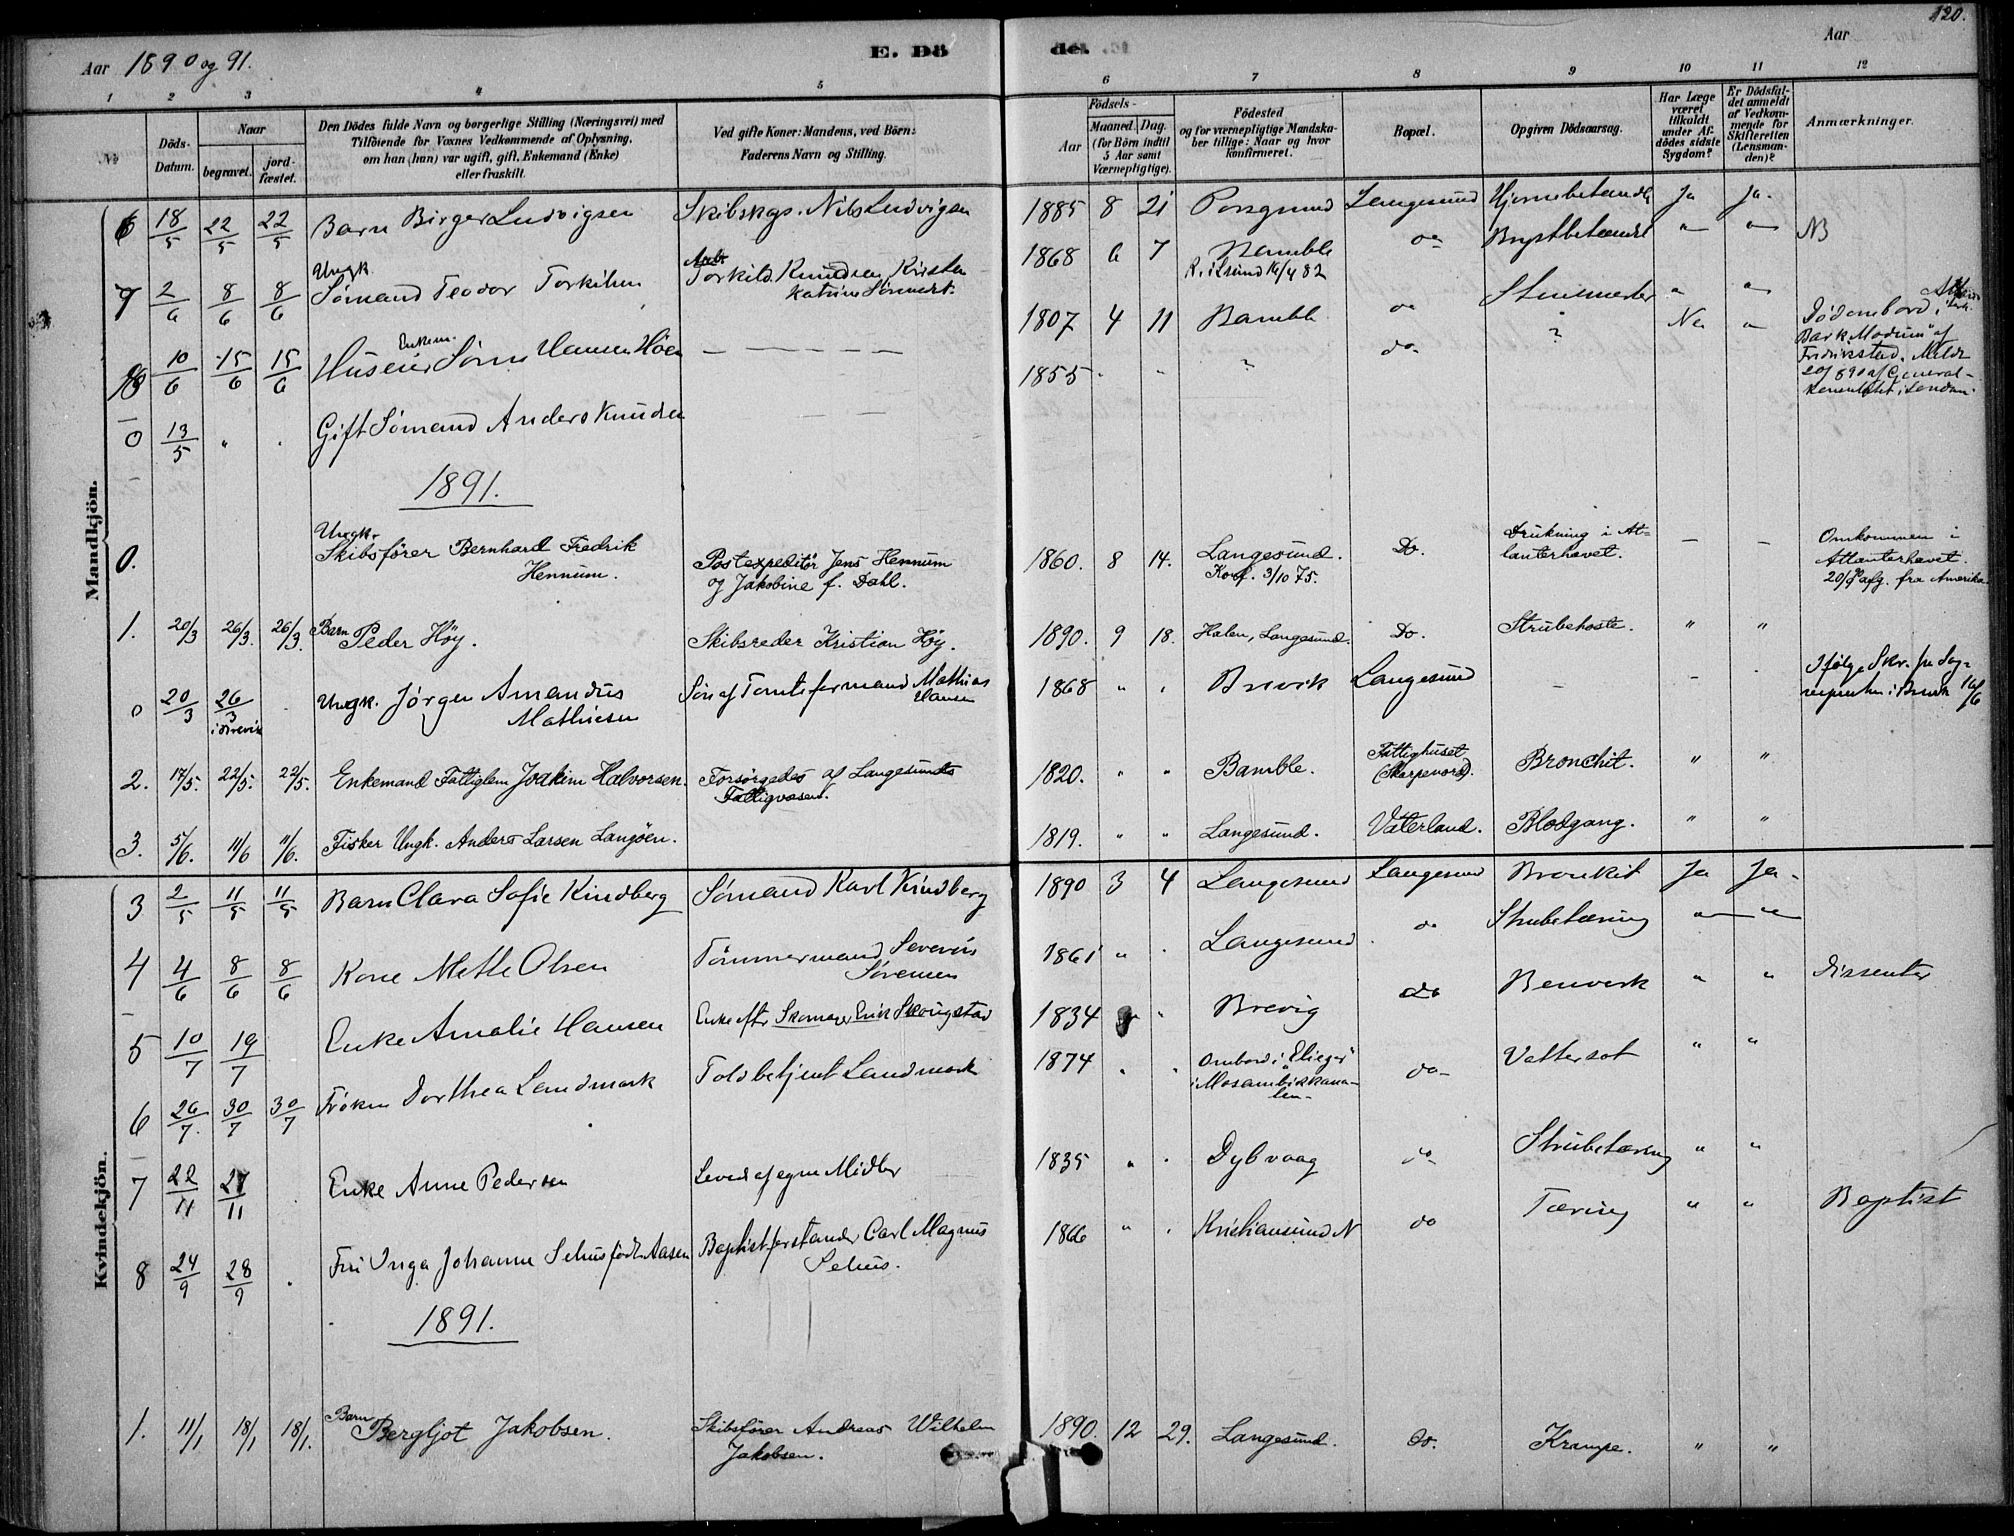 Aar 1890 og 91.
E. Dö
de.
Aar
120.
1 2 3 4 5 6 7 8 9 10 11 12
No
Döds-Datum.
Naar
begravet.
jord-fæstet.
Den Dödes fulde Navn og borgerlige Stilling (Næringsvei) med
Tilföiende for Voxnes Vedkommende af Oplysning,
om han (hun) var ugift, gift, Enkemand (Enke)
eller fraskilt.
Ved gifte Koner: Mandens, ved Börn:
Faderens Navn og Stilling.
Födsels-
Aar
Maaned. Dag.
(for Börn indtil
5 Aar samt
Værnepligtige).
Födested
og for værnepligtige Mandska-
ber tillige: Naar og hvor
konfirmeret.
Bopæl.
Opgiven Dödsaarsag.
Har Læge
været
tilkaldt
under Af-
dödes sidste
Sygdom?
Er Dödsfal-
det anmeldt
af Vedkom-
mende for
Skifteretten
(Lensman-
den)?
Anmærkninger.
Mandkjön.
6 18/5 22/5 22/5 Barn Birger Ludvigsen Skibskgs. Nils Ludvigsen 1885 8 21 Porsgrund Langesund Hjernebetændl Ja Ja.
7 2/6 8/6 8/6 Ungk. Sømand Teodor Torkilsen Torkild Knudsen Kirsten Katrine 1868 6 7 Bamble do Brystbetændel " " NB
10/6 15/6 15/6 Huseier Enkem. Søren Hansen Høen — — — — 1807 4 11 Bamble do Nei "
0 13/5 " " Gift Sømand Anders Knudsen — — — 1855 " " " do ? Døde ombord i
Bark "Modum" af
Fredrikstad. Meldt
af General-
konsulatet i London
1891.
0. Ungk. Skibsfører Bernhard Fredrik
Hennum. Postexpeditör Jens Hennum
og Jakobine f. Dahl. 1860. 8 14. Langesund.
Konf. 3/10 75. Do. Drukning i At-
lanterhavet. — — Omkommen i
Atlanterhavet.
20/9 afg. fra Amerika
1. 20/3 26/3. 26/3. Barn Peder Höy. Skibsreder Kristian Höy. 1890. 9 18. Halen, Langesund. Do. Strubehoste. " "
0 20/3 26/3 i Brevik Ungk. Jörgen Amandus
Mathiesen Søn af Tomteformand Mathias
Hansen 1868 " " Brevik Langesund — — Ifølge Skr. fra Sog-
nepresten i Brevik 16/6
2. 17/5. 22/5. 22/5. Enkemand Fattiglem Joakim Halvorsen. Forsörgedes af Langesunds
Fattigvæsen. 1820. " " Bamble. Fattighuset Bronchit. " "
3. 5/6. 11/6 11/6. Fisker Ungk. Anders Larsen Langöen. 1819. " " Langesund. Vaterland. Blodgang. " "
Kvindekjön.
3 2/5 11/5 11/5 Barn Clara Sofie Kindberg Sømand Karl Kindberg 1890 3 4 Langesund Langesund Bronkit Ja Ja
4 4/6 8/6 8/6 Kone Mette Olsen Tømmermand Severin
Sørensen 1861 " " Langesund do Strubetæring " "
5 10/7 19/7 Enke Amalie Hansen Enke efter Skomager Erik Skougstad 1834 " Brevig do Benverk " " Dissenter
6 26/7. 30/7 30/7 Frøken Dorthea Landmark Toldbetjent Landmark 1874 " " Ombord i "Elieger"
i Mosambikkana-
len do Vattersot " "
7 22/11 27/11 Enke Anne Pedersen Leved af egne Midler 1835 " " Dybvaag do Strubetæring " "
8 24/9 28/9 Fru Inga Johanne Sehus født Aasen Baptistforstander Carl Magnus
Sehus. 1866 " " Kristiansund N do Tæring " " Baptist
1891.
1. 11/1 18/1 18/1. Barn Bergljot Jakobsen. Skibsförer Andreas Wilhelm
Jakobsen. 1890. 12 29. Langesund. Do. Krampe. " "